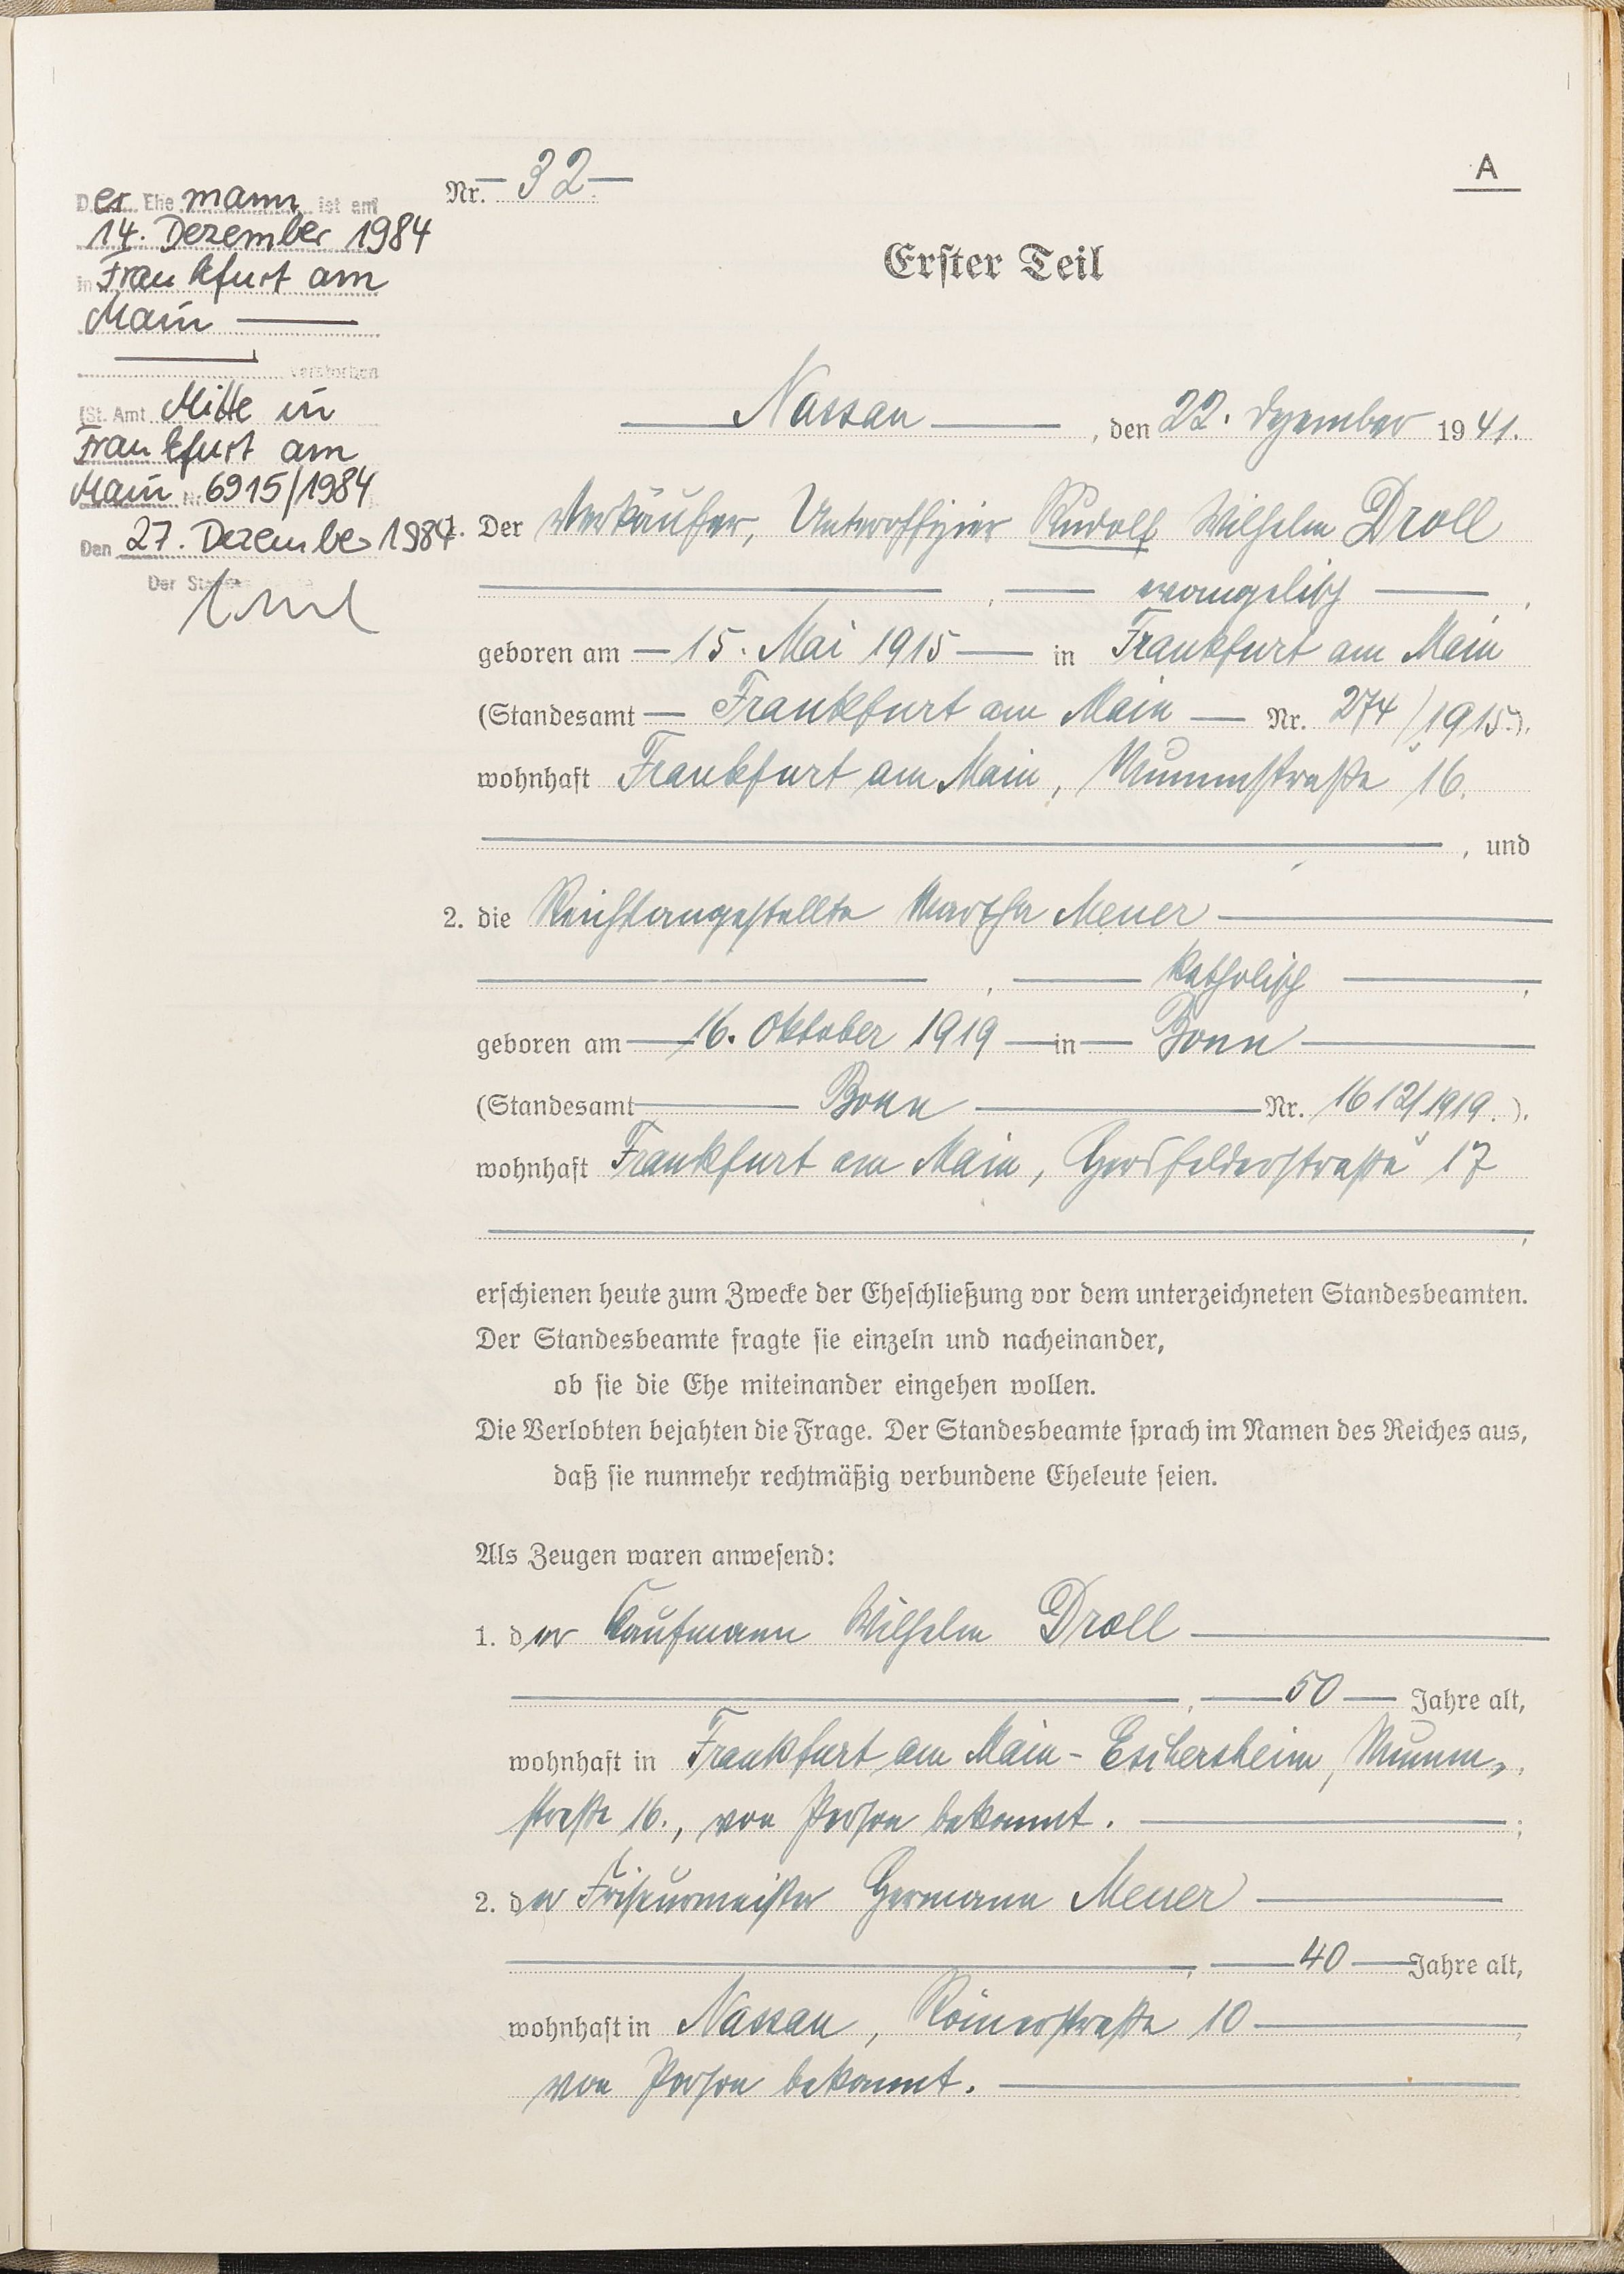 A
Nr. 32
Erster Teil
Der Ehemann ist am
14. Dezember 1984
in Frankfurt am
Main
verstorben
(St. Amt Mitte in
Frankfurt am
Main Nr. 6915/1984
Den 27. Dezember 1984
Nassau, den 22. Dezember 1941.
1. Der Verkäufer, Unteroffizier Rudolf Wilhelm Droll
, evangelisch,
geboren am 15. Mai 1915 in Frankfurt am Main
(Standesamt Frankfurt am Main Nr. 274/1915).
wohnhaft Frankfurt am Main, Mummstraße 16.
, und
2. die Reichsangestellte Martha Meuer
, katholisch,
geboren am 16. Oktober 1919 in Bonn
(Standesamt Bonn Nr. 1612/1919.).
wohnhaft Frankfurt am Main, Hersfelderstraße 17
,
erschienen heute zum Zwecke der Eheschließung vor dem unterzeichneten Standesbeamten.
Der Standesbeamte fragte sie einzeln und nacheinander,
ob sie die Ehe miteinander eingehen wollen.
Die Verlobten bejahten die Frage. Der Standesbeamte sprach im Namen des Reiches aus,
daß sie nunmehr rechtmäßig verbundene Eheleute seien.
Als Zeugen waren anwesend:
1. der Kaufmann Wilhelm Droll
, 50 Jahre alt,
wohnhaft in Frankfurt am Main-Eschersheim, Mumm-
straße 16., von Person bekannt. ;
2. der Friseurmeister Hermann Meuer
, 40 Jahre alt,
wohnhaft in Nassau, Römerstraße 10
von Person bekannt.